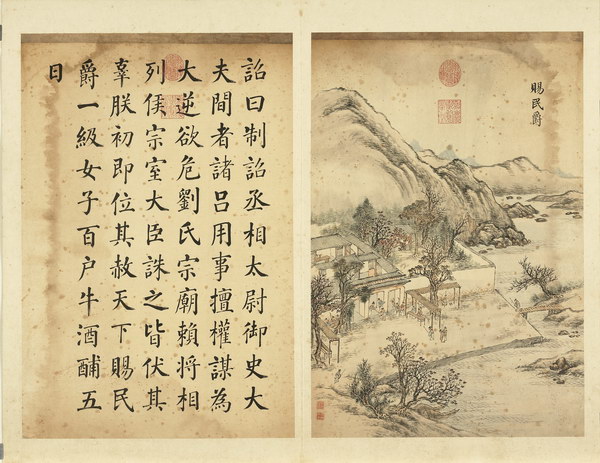 賜民爵
詔曰制詔丞相太尉御史大
夫間者諸呂用事擅權謀為
大逆欲危劉氏宗廟賴將相
列侯宗室大臣誅之皆伏其
辜朕初即位其赦天下賜民
爵一級女子百户牛酒酺五
日